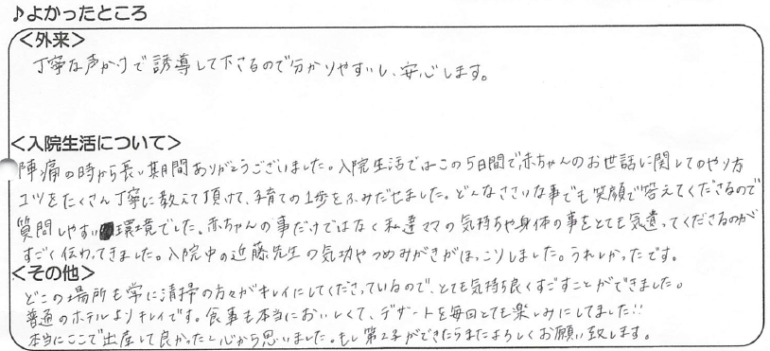 ♪よかったところ
＜外来＞
丁寧な声かけで誘導して下さるので分かりやすいし、安心します。
＜入院生活について＞
陣痛の時から長い期間ありがとうございました。入院生活ではこの5日間で、赤ちゃんのお世話に関してのやり方
コツをたくさん丁寧に教えて頂けて、子育ての1歩をふみだせました。どんなささいな事でも笑顔で答えてくださるので
質問しやすい環境でした。赤ちゃんの事だけではなく私達ママの気持ちや身体の事をとても気遣ってくださるのが
すごく伝わってきました。入院中の近藤先生の気功やつめみがきがほっこりしました。うれしかったです。
＜その他＞
どこの場所も常に清掃の方々がキレイにしてくださっているので、とても気持ち良くすごすことができました。
普通のホテルよりキレイです。食事も本当においしくて、デザートを毎回とても楽しみにしてました!!
本当にここで出産して良かったと心から思いました。もし第2子ができたらまたよろしくお願い致します。